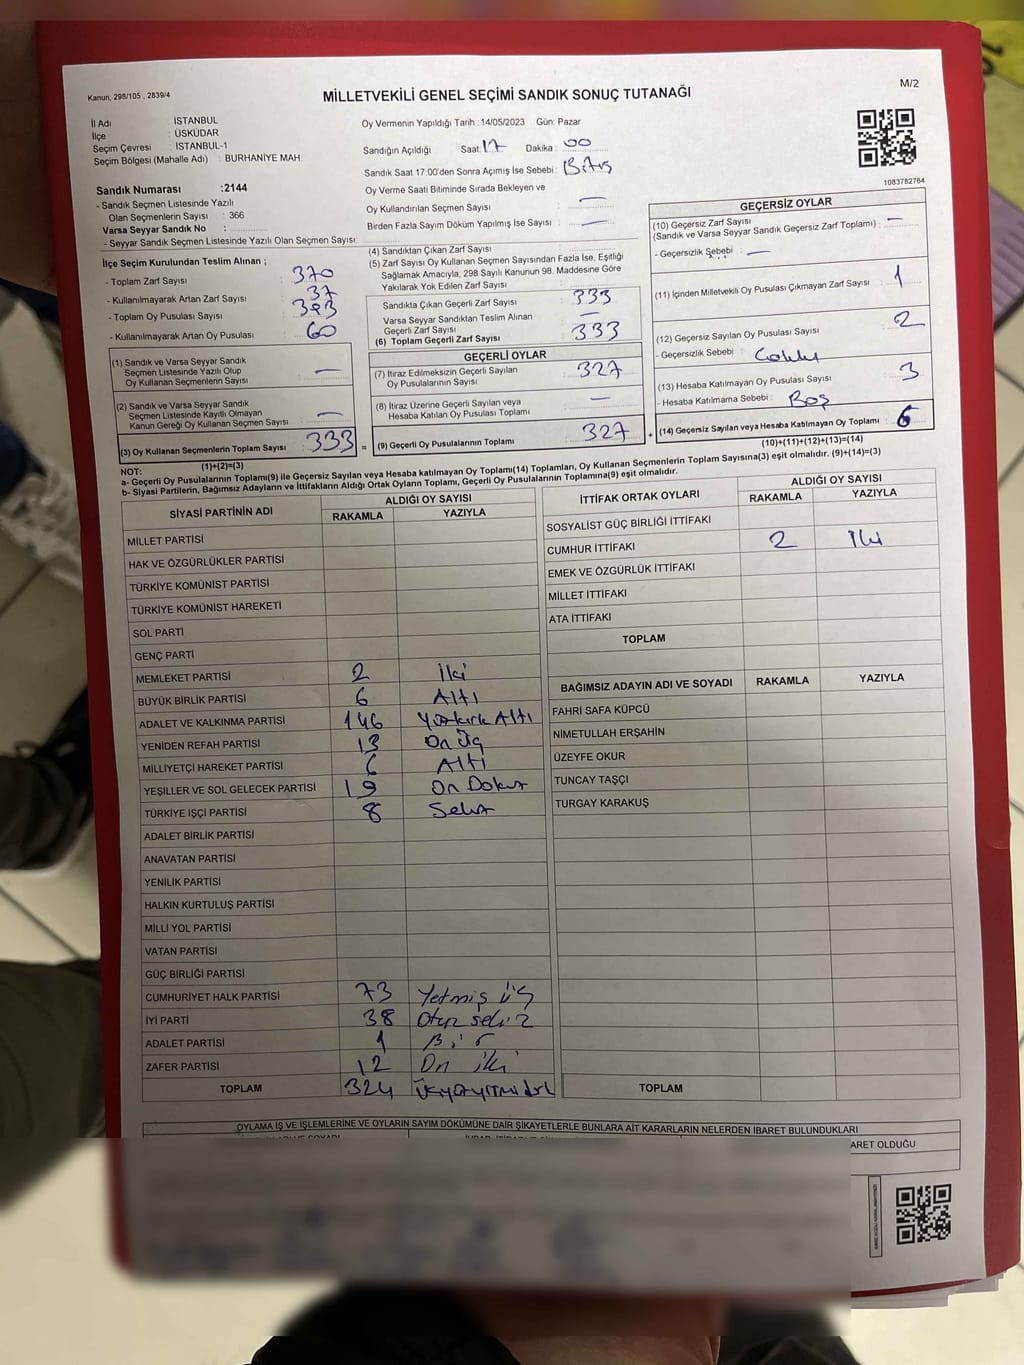 Kanun; 298/105 , 2839/4
MİLLETVEKİLİ GENEL SEÇİMİ SANDIK SONUÇ TUTANAĞI
M/2
İl Adı : İSTANBUL
İlçe : ÜSKÜDAR
Seçim Çevresi : İSTANBUL-1
Seçim Bölgesi (Mahalle Adı) : BURHANİYE MAH.
Oy Vermenin Yapıldığı Tarih :14/05/2023 Gün: Pazar
Sandığın Açıldığı Saat: 17 Dakika : 00
Sandık Saat 17.00'den Sonra Açımış İse Sebebi : Bitiş
Oy Verme Saati Bitiminde Sırada Bekleyen ve
Oy Kullandırılan Seçmen Sayısı : —
Birden Fazla Sayım Döküm Yapılmış İse Sayısı : —
1083782764
Sandık Numarası :2144
- Sandık Seçmen Listesinde Yazılı
Olan Seçmenlerin Sayısı : 366
Varsa Seyyar Sandık No :
- Seyyar Sandık Seçmen Listesinde Yazılı Olan Seçmen Sayısı:
İlçe Seçim Kurulundan Teslim Alınan ;
- Toplam Zarf Sayısı : 370
- Kullanılmayarak Artan Zarf Sayısı : 37
- Toplam Oy Pusulası Sayısı : 393
- Kullanılmayarak Artan Oy Pusulası : 60
(1) Sandık ve Varsa Seyyar Sandık
Seçmen Listesinde Yazılı Olup
Oy Kullanan Seçmenlerin Sayısı : —
(2) Sandık ve Varsa Seyyar Sandık
Seçmen Listesinde Kayıtlı Olmayan
Kanun Gereği Oy Kullanan Seçmen Sayısı : —
(3) Oy Kullanan Seçmenlerin Toplam Sayısı : 333 =
(1)+(2)=(3)
(4) Sandıktan Çıkan Zarf Sayısı :
(5) Zarf Sayısı Oy Kullanan Seçmen Sayısından Fazla İse, Eşitliği
Sağlamak Amacıyla, 298 Sayılı Kanunun 98. Maddesine Göre
Yakılarak Yok Edilen Zarf Sayısı :
Sandıkta Çıkan Geçerli Zarf Sayısı : 333
Varsa Seyyar Sandıktan Teslim Alınan
Geçerli Zarf Sayısı : —
(6) Toplam Geçerli Zarf Sayısı : 333
GEÇERLİ OYLAR
(7) İtiraz Edilmeksizin Geçerli Sayılan
Oy Pusulalarının Sayısı : 327
(8) İtiraz Üzerine Geçerli Sayılan veya
Hesaba Katılan Oy Pusulası Toplamı : —
(9) Geçerli Oy Pusulalarının Toplamı : 327 +
GEÇERSİZ OYLAR
(10) Geçersiz Zarf Sayısı
(Sandık ve Varsa Seyyar Sandık Geçersiz Zarf Toplamı) : —
- Geçersizlik Sebebi : —
(11) İçinden Milletvekili Oy Pusulası Çıkmayan Zarf Sayısı : 1
(12) Geçersiz Sayılan Oy Pusulası Sayısı : 2
- Geçersizlik Sebebi :
(13) Hesaba Katılmayan Oy Pusulası Sayısı : 3
- Hesaba Katılmama Sebebi : Boş
(14) Geçersiz Sayılan veya Hesaba Katılmayan Oy Toplamı : 6
(10)+(11)+(12)+(13)=(14)
NOT:
a- Geçerli Oy Pusulalarının Toplamı(9) ile Geçersiz Sayılan veya Hesaba katılmayan Oy Toplamı(14) Toplamları, Oy Kullanan Seçmenlerin Toplam Sayısına(3) eşit olmalıdır. (9)+(14)=(3)
b- Siyasi Partilerin, Bağımsız Adayların ve İttifakların Aldığı Ortak Oyların Toplamı, Geçerli Oy Pusulalarının Toplamına(9) eşit olmalıdır.
SİYASİ PARTİNİN ADI ALDIĞI OY SAYISI
RAKAMLA YAZIYLA
MİLLET PARTİSİ
HAK VE ÖZGÜRLÜKLER PARTİSİ
TÜRKİYE KOMÜNİST PARTİSİ
TÜRKİYE KOMÜNİST HAREKETİ
SOL PARTİ
GENÇ PARTİ
MEMLEKET PARTİSİ 2 İki
BÜYÜK BİRLİK PARTİSİ 6 Altı
ADALET VE KALKINMA PARTİSİ 146 Yüzkırk Altı
YENİDEN REFAH PARTİSİ 13 On Üç
MİLLİYETÇİ HAREKET PARTİSİ 6 Altı
YEŞİLLER VE SOL GELECEK PARTİSİ 19 On Dokuz
TÜRKİYE İŞÇİ PARTİSİ 8 Sekiz
ADALET BİRLİK PARTİSİ
ANAVATAN PARTİSİ
YENİLİK PARTİSİ
HALKIN KURTULUŞ PARTİSİ
MİLLİ YOL PARTİSİ
VATAN PARTİSİ
GÜÇ BİRLİĞİ PARTİSİ
CUMHURİYET HALK PARTİSİ 73 Yetmiş üç
İYİ PARTİ 38 Otuz sekiz
ADALET PARTİSİ 1 Bir
ZAFER PARTİSİ 12 On iki
TOPLAM 324
İTTİFAK ORTAK OYLARI ALDIĞI OY SAYISI
RAKAMLA YAZIYLA
SOSYALİST GÜÇ BİRLİĞİ İTTİFAKI
CUMHUR İTTİFAKI 2 İki
EMEK VE ÖZGÜRLÜK İTTİFAKI
MİLLET İTTİFAKI
ATA İTTİFAKI
TOPLAM
BAĞIMSIZ ADAYIN ADI VE SOYADI RAKAMLA YAZIYLA
FAHRİ SAFA KÜPCÜ
NİMETULLAH ERŞAHİN
ÜZEYFE OKUR
TUNCAY TAŞÇI
TURGAY KARAKUŞ
TOPLAM
OYLAMA İŞ VE İŞLEMLERİNE VE OYLARIN SAYIM DÖKÜMÜNE DAİR ŞİKAYETLERLE BUNLARA AİT KARARLARIN NELERDEN İBARET BULUNDUKLARI
ARET OLDUĞU